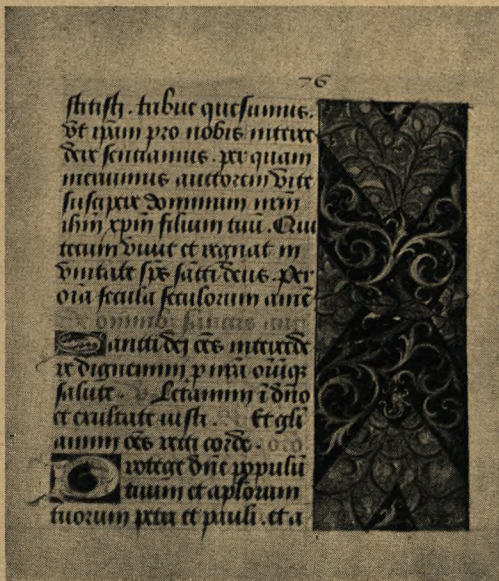 76
stitisti. tribue quesumus.
Vt ipam pro nobis interce
dere sentiamus. per quam
meruimus auctorem vite
suscipere dominum nrm
ihm xpm filium tuu. Qui
tecum viuit et regnat in
vnitate sps sancti deus. Per
oia secula seculorum ame
De omnibus sanctis
Sancti dei oes interced
re dignemini p nra oiuq
salute. Letamini i dno
et exultate iusti. Et gli
amini oes recti corde.
Protege dne populu
tuum et aplorum
tuorum petri et pauli. et a